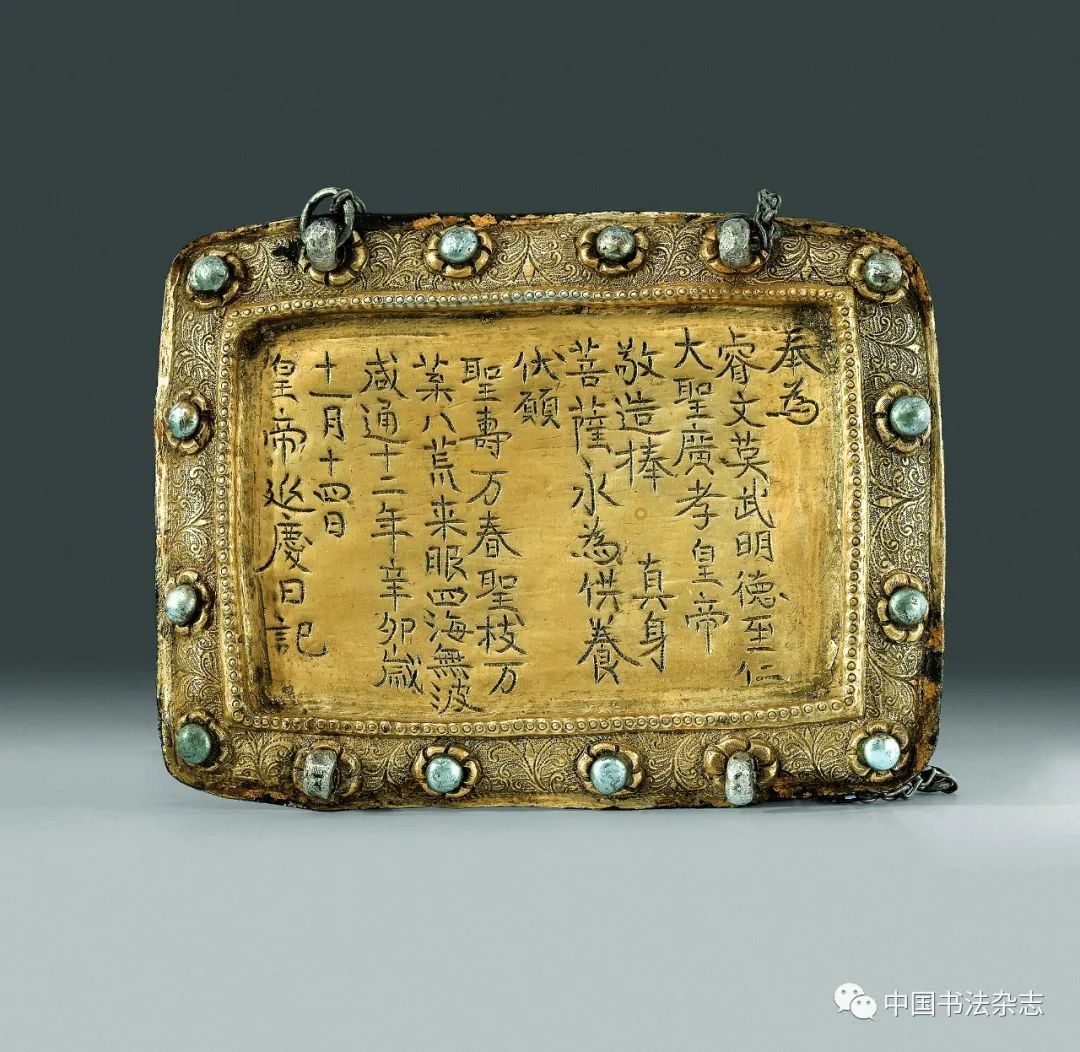 奉為
睿文英武明德至仁
大聖廣孝皇帝
敬造捧 真身
菩薩永為供養
伏願
聖壽万春聖枝万
葉八荒来服四海無波
咸通十二年辛卯歲
十一月十四日
皇帝延慶日記
中国书法杂志